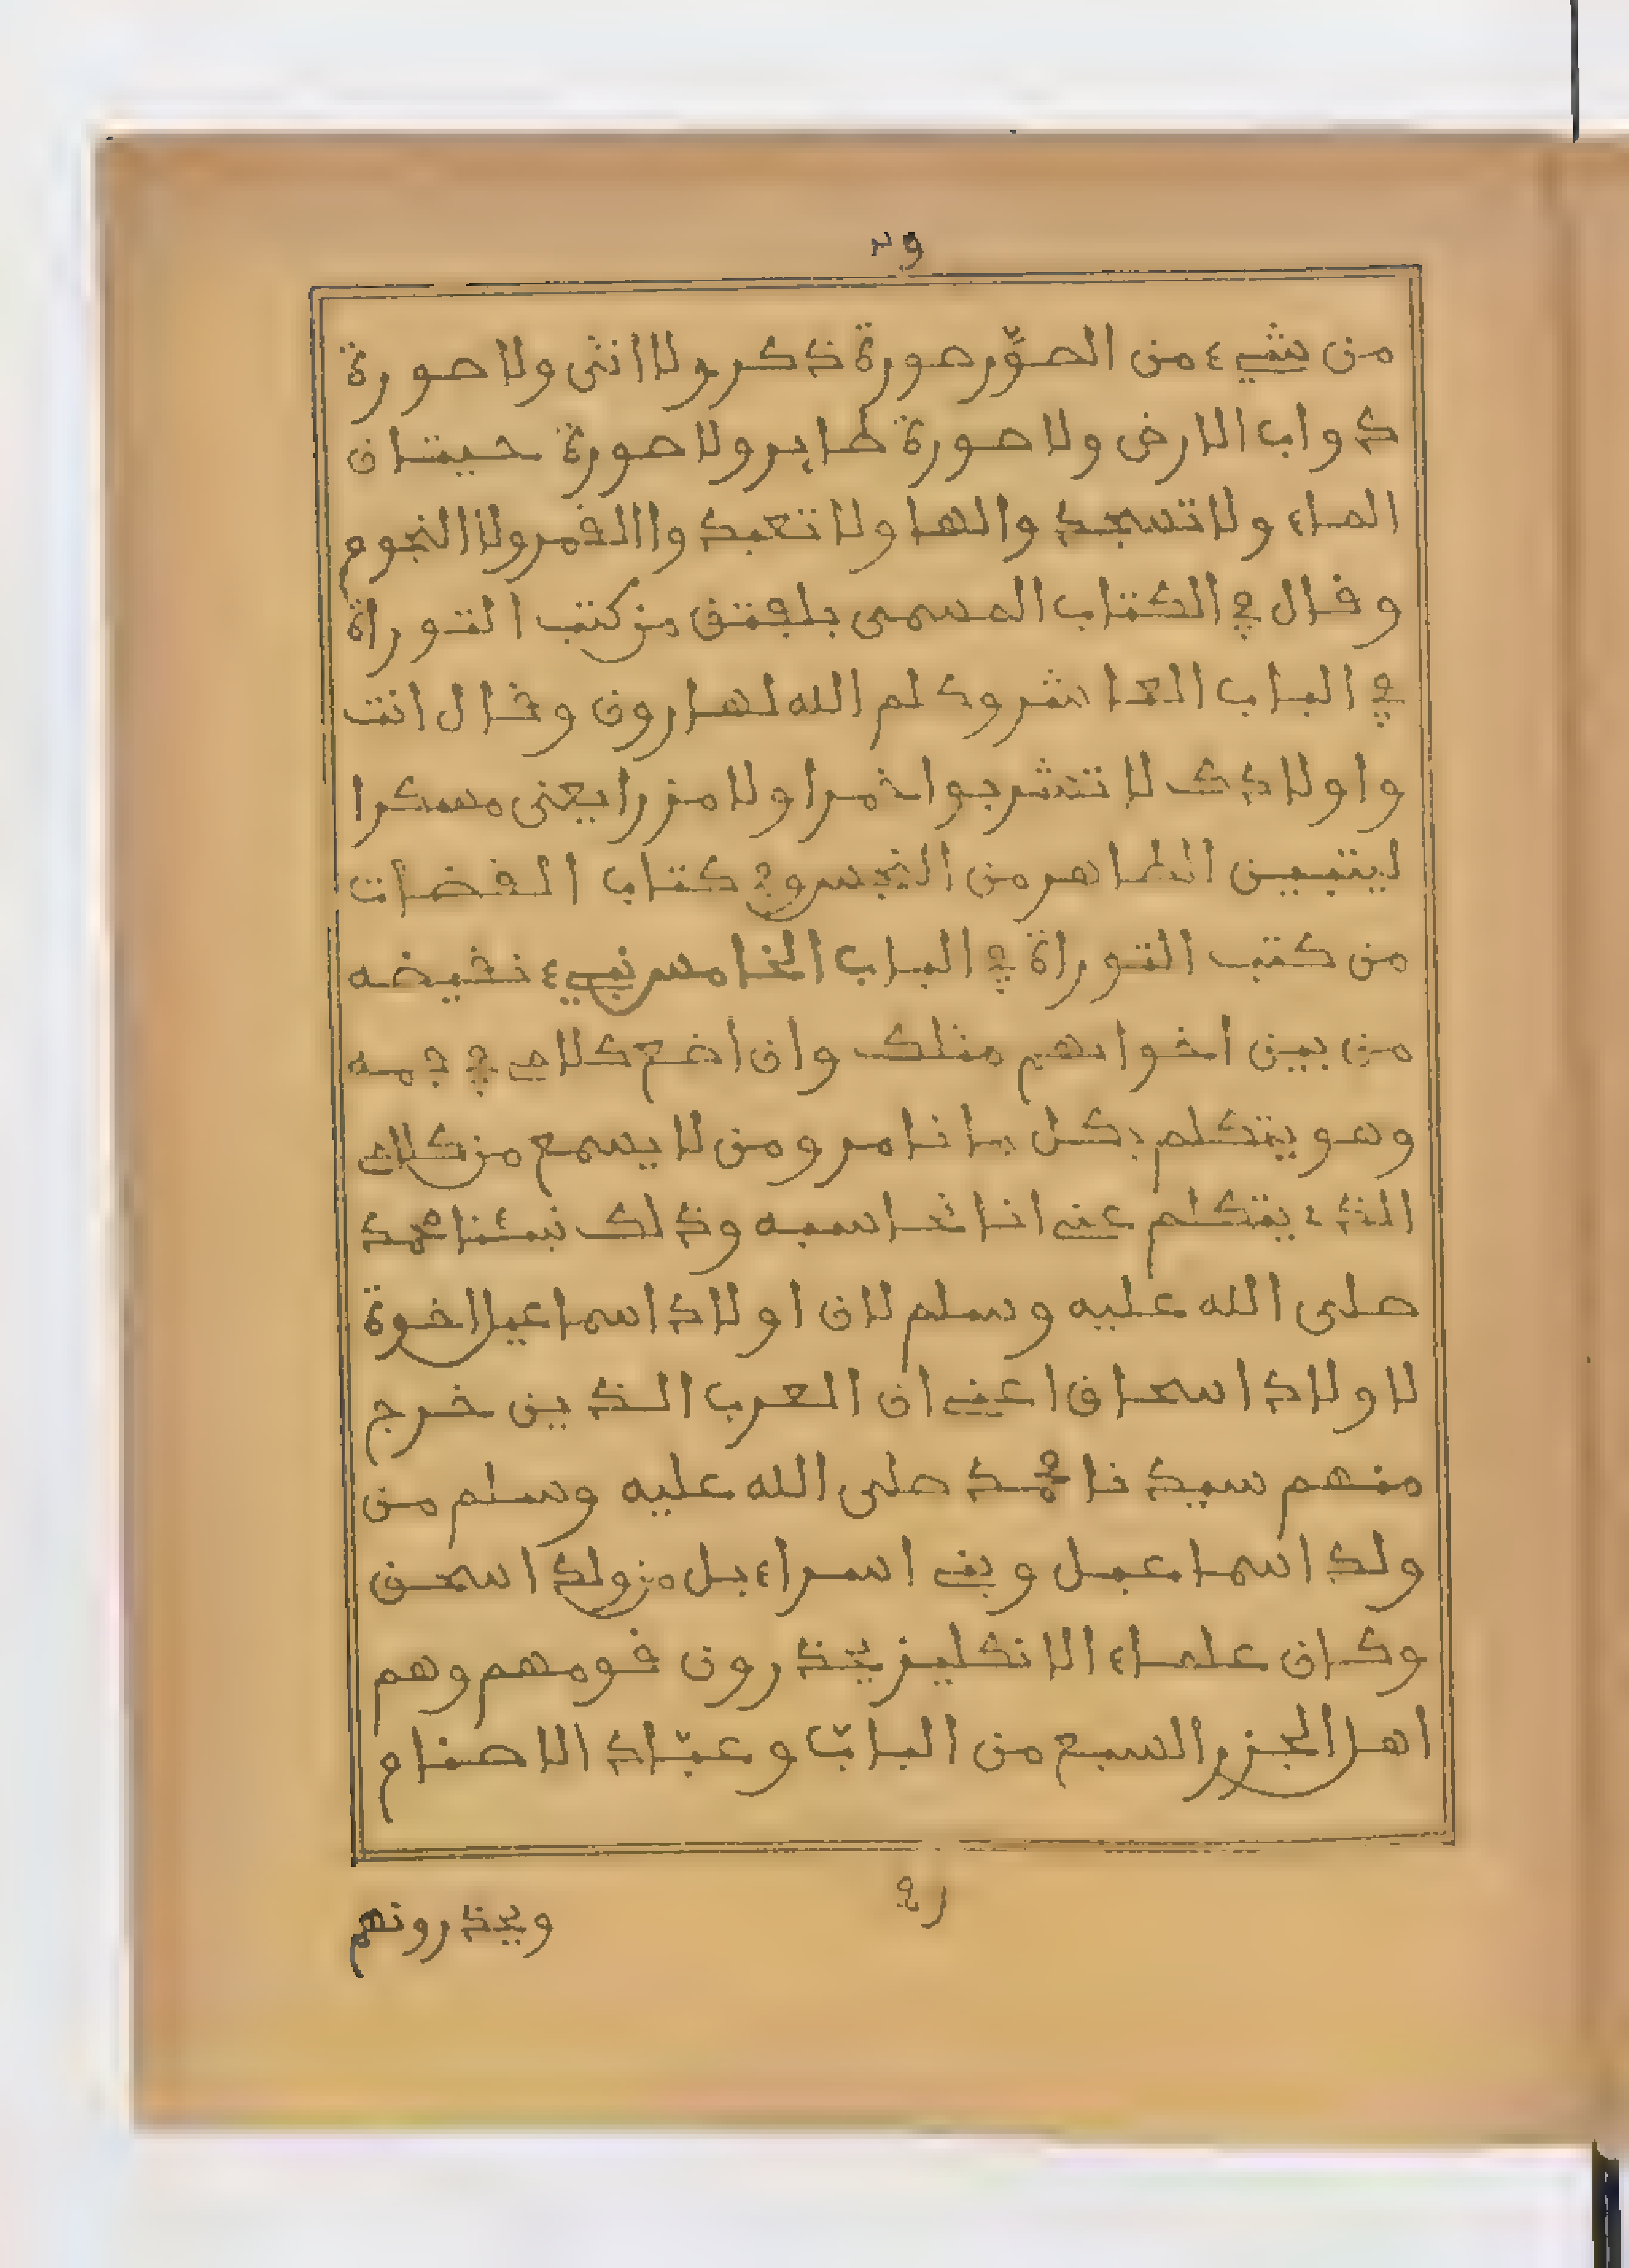 من شيء من الصوّر صورة ذكر ولا انثى ولا صورة
دواب الارض ولا صورة طاير ولا صورة حيتان
الماء ولا تسجد والها ولا تعبد واالقمر ولا النجوم
وقال في الكتاب المسمى بلفتق من كتب التوراة
في الباب العاشر وكلم الله لهارون وقال انت
واولادك لا تشربوا خمرا ولا مزرا يعنى مسكرا
ليتبين الطاهر من النجس وفي كتاب القضات
من كتب التوراة في الباب الخامس نبيء نقيضه
من بين اخوانهم مثلك وان اضع كلامي في فمه
وهو يتكلم بكل ما نامر ومن لا يسمع من كلامي
الذي يتكلم عني انا نحاسبه وذلك نبيئنا محمد
صلى الله عليه وسلم لان اولاد اسماعيل اخوة
لاولاد اسحاق اعني ان العرب الذين خرج
منهم سيدنا محمد صلى الله عليه وسلم من
ولد اسماعيل وبني اسراءيل من ولد اسحق
وكان علماء الانكليز يحذرون قومهم وهم
اهل الجزر السبع من الباب وعبّاد الاصنام
ويحذرونهم